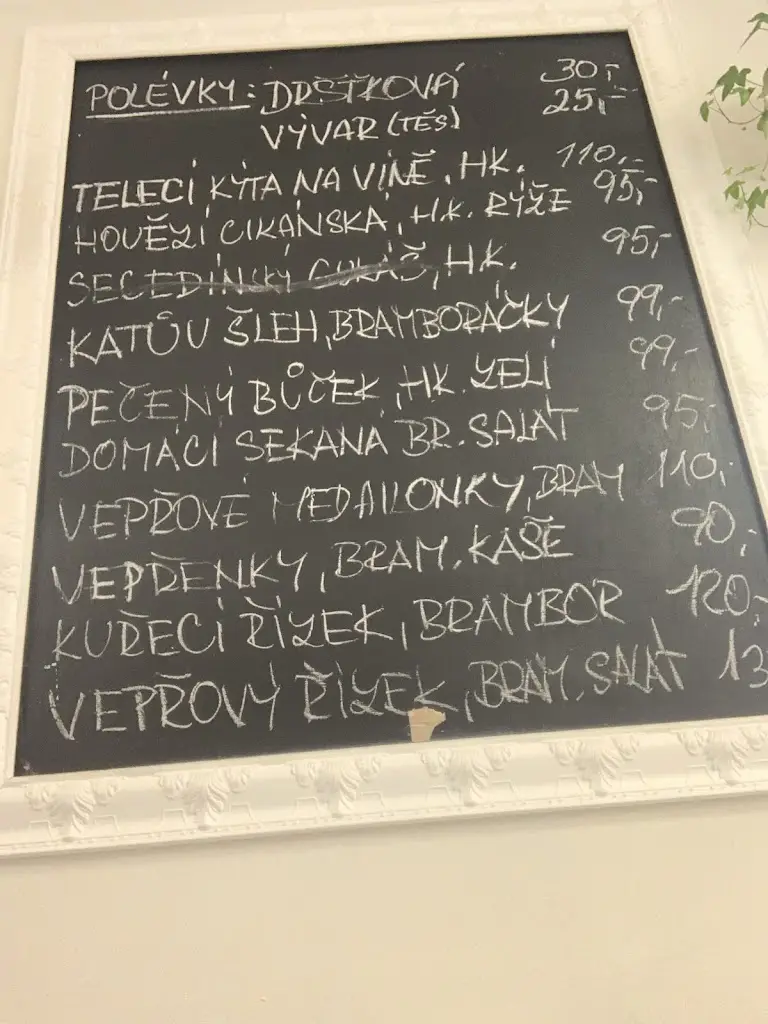 POLÉVKY: DRŠŤKOVÁ 30,-
VÝVAR (TĚS) 25,-
TELECÍ KÝTA NA VÍNĚ, HK. 110,-
HOVĚZÍ CIKÁNSKÁ, HK. RÝŽE 95,-
SEGEDÍNSKÝ GULÁŠ, HK. 95,-
KATŮV ŠLEH, BRAMBORÁČKY 99,-
PEČENÝ BŮČEK, HK. ZELÍ 99,-
DOMÁCÍ SEKANÁ BR. SALÁT 95,-
VEPŘOVÉ MEDAILONKY, BRAM 110,-
VEPŘENKY, BRAM. KAŠE 90,-
KUŘECÍ ŘÍZEK, BRAMBOR 120,-
VEPŘOVÝ ŘÍZEK, BRAM. SALÁT 13